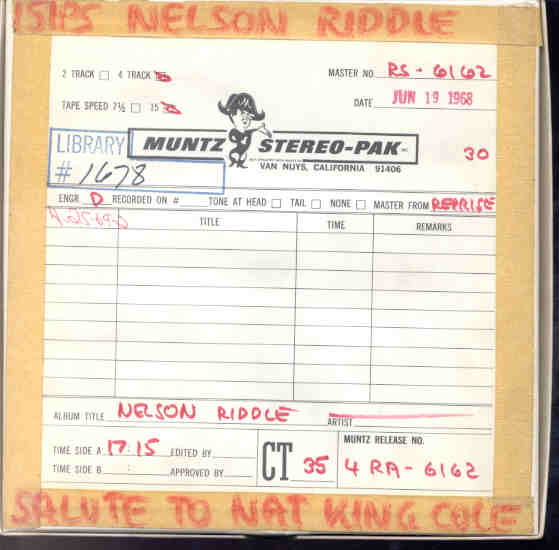 15IPS NELSON RIDDLE
2 TRACK □ 4 TRACK
MASTER NO. RS-6162
TAPE SPEED 7½ □ 15
DATE JUN 19 1968
LIBRARY # 1678
MUNTZ STEREO-PAK INC.
VAN NUYS, CALIFORNIA 91406
30
ENGR. D RECORDED ON # TONE AT HEAD □ TAIL □ NONE □ MASTER FROM REPRISE
TITLE TIME REMARKS
ALBUM TITLE NELSON RIDDLE ARTIST
TIME SIDE A 17:15 EDITED BY
TIME SIDE B : APPROVED BY
CT 35
MUNTZ RELEASE NO.
4 RA-6162
SALUTE TO NAT KING COLE